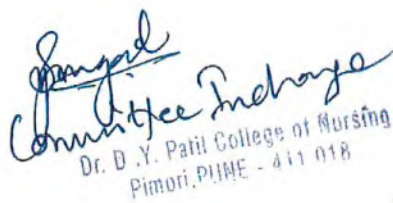 Committee Incharge
Dr. D.Y. Patil College of Nursing
Pimpri, PUNE - 411 018